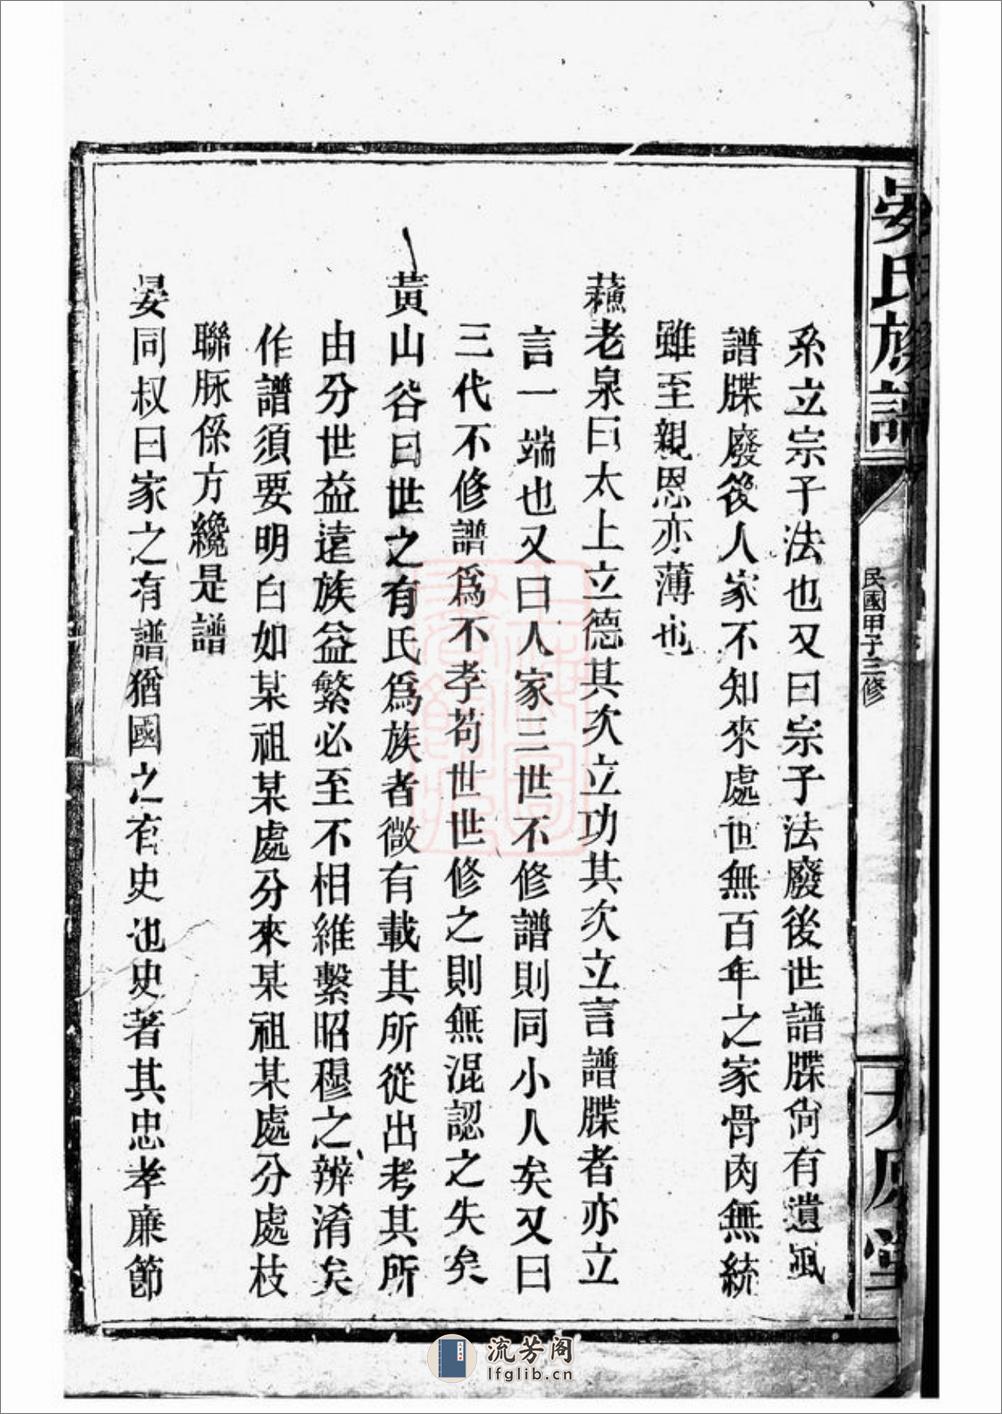 晏氏族譜
民國甲子三修
系立宗子法也又曰宗子法廢後世譜牒尙有遺風
譜牒廢後人家不知來處世無百年之家骨肉無統
雖至親恩亦薄也
蘓老泉曰太上立德其次立功其次立言譜牒者亦立
言一端也又曰人家三世不修譜則同小人矣又曰
三代不修譜爲不孝苟世世修之則無混認之失矣
黃山谷曰世之有氏爲族者微有載其所從出考其所
由分世益遠族益繁必至不相維繫昭穆之辨淆矣
作譜須要明白如某祖某處分來某祖某處分處枝
聯脉係方纔是譜
晏同叔曰家之有譜猶國之有史也史著其忠孝廉節
流芳阁
lfglib.cn